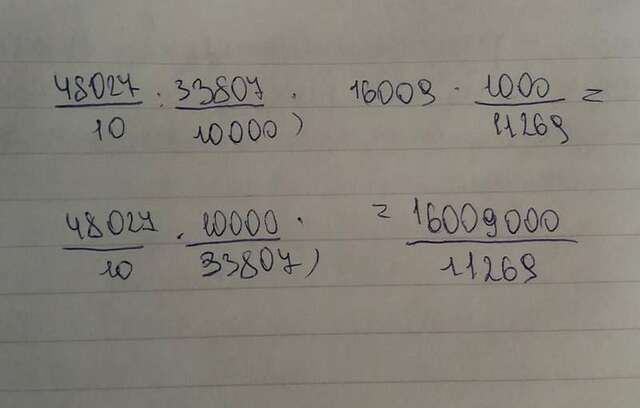 48027/10 : 33807/10000; 16009 · 1000/11269 =
48027/10 · 10000/33807; = 16009000/11269